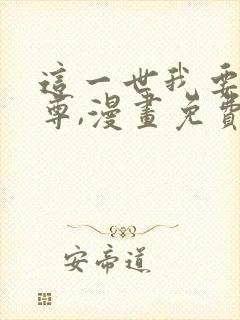 這一世我要
尊,漫畫免費
安帝道